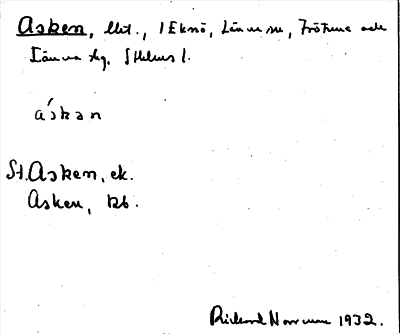 Asken, Ekenö, Länna sn, Frötuna och
Länna skg,
áskan
St. Asken, ek.
Asken, kb.
Rickard Norrman 1932.